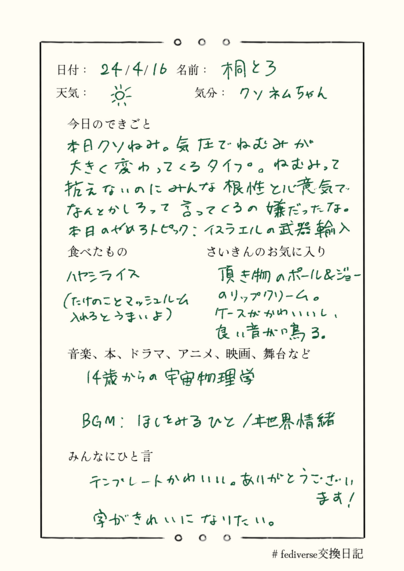 日付： 24/4/16 名前： 桐とろ
天気： 気分： クソネムちゃん
今日のできごと
本日クソねみ。気圧でねむみが
大きく変わってくるタイプ。ねむみって
抗えないのにみんな根性と心意気で
なんとかしろって言ってくるの嫌だったな。
本日のやめろトピック：イスラエルの武器輸入
食べたもの さいきんのお気に入り
ハヤシライス 頂き物のポール&ジョー
(たけのことマッシュルーム のリップクリーム。
入れるとうまいよ) ケースがかわいいし、
良い音が鳴る。
音楽、本、ドラマ、アニメ、映画、舞台など
14歳からの宇宙物理学
BGM： ほしをみるひと/本世界情緒
みんなにひと言
テンプレートかわいい。ありがとうござい
ます!
字がきれいになりたい。
# fediverse交換日記